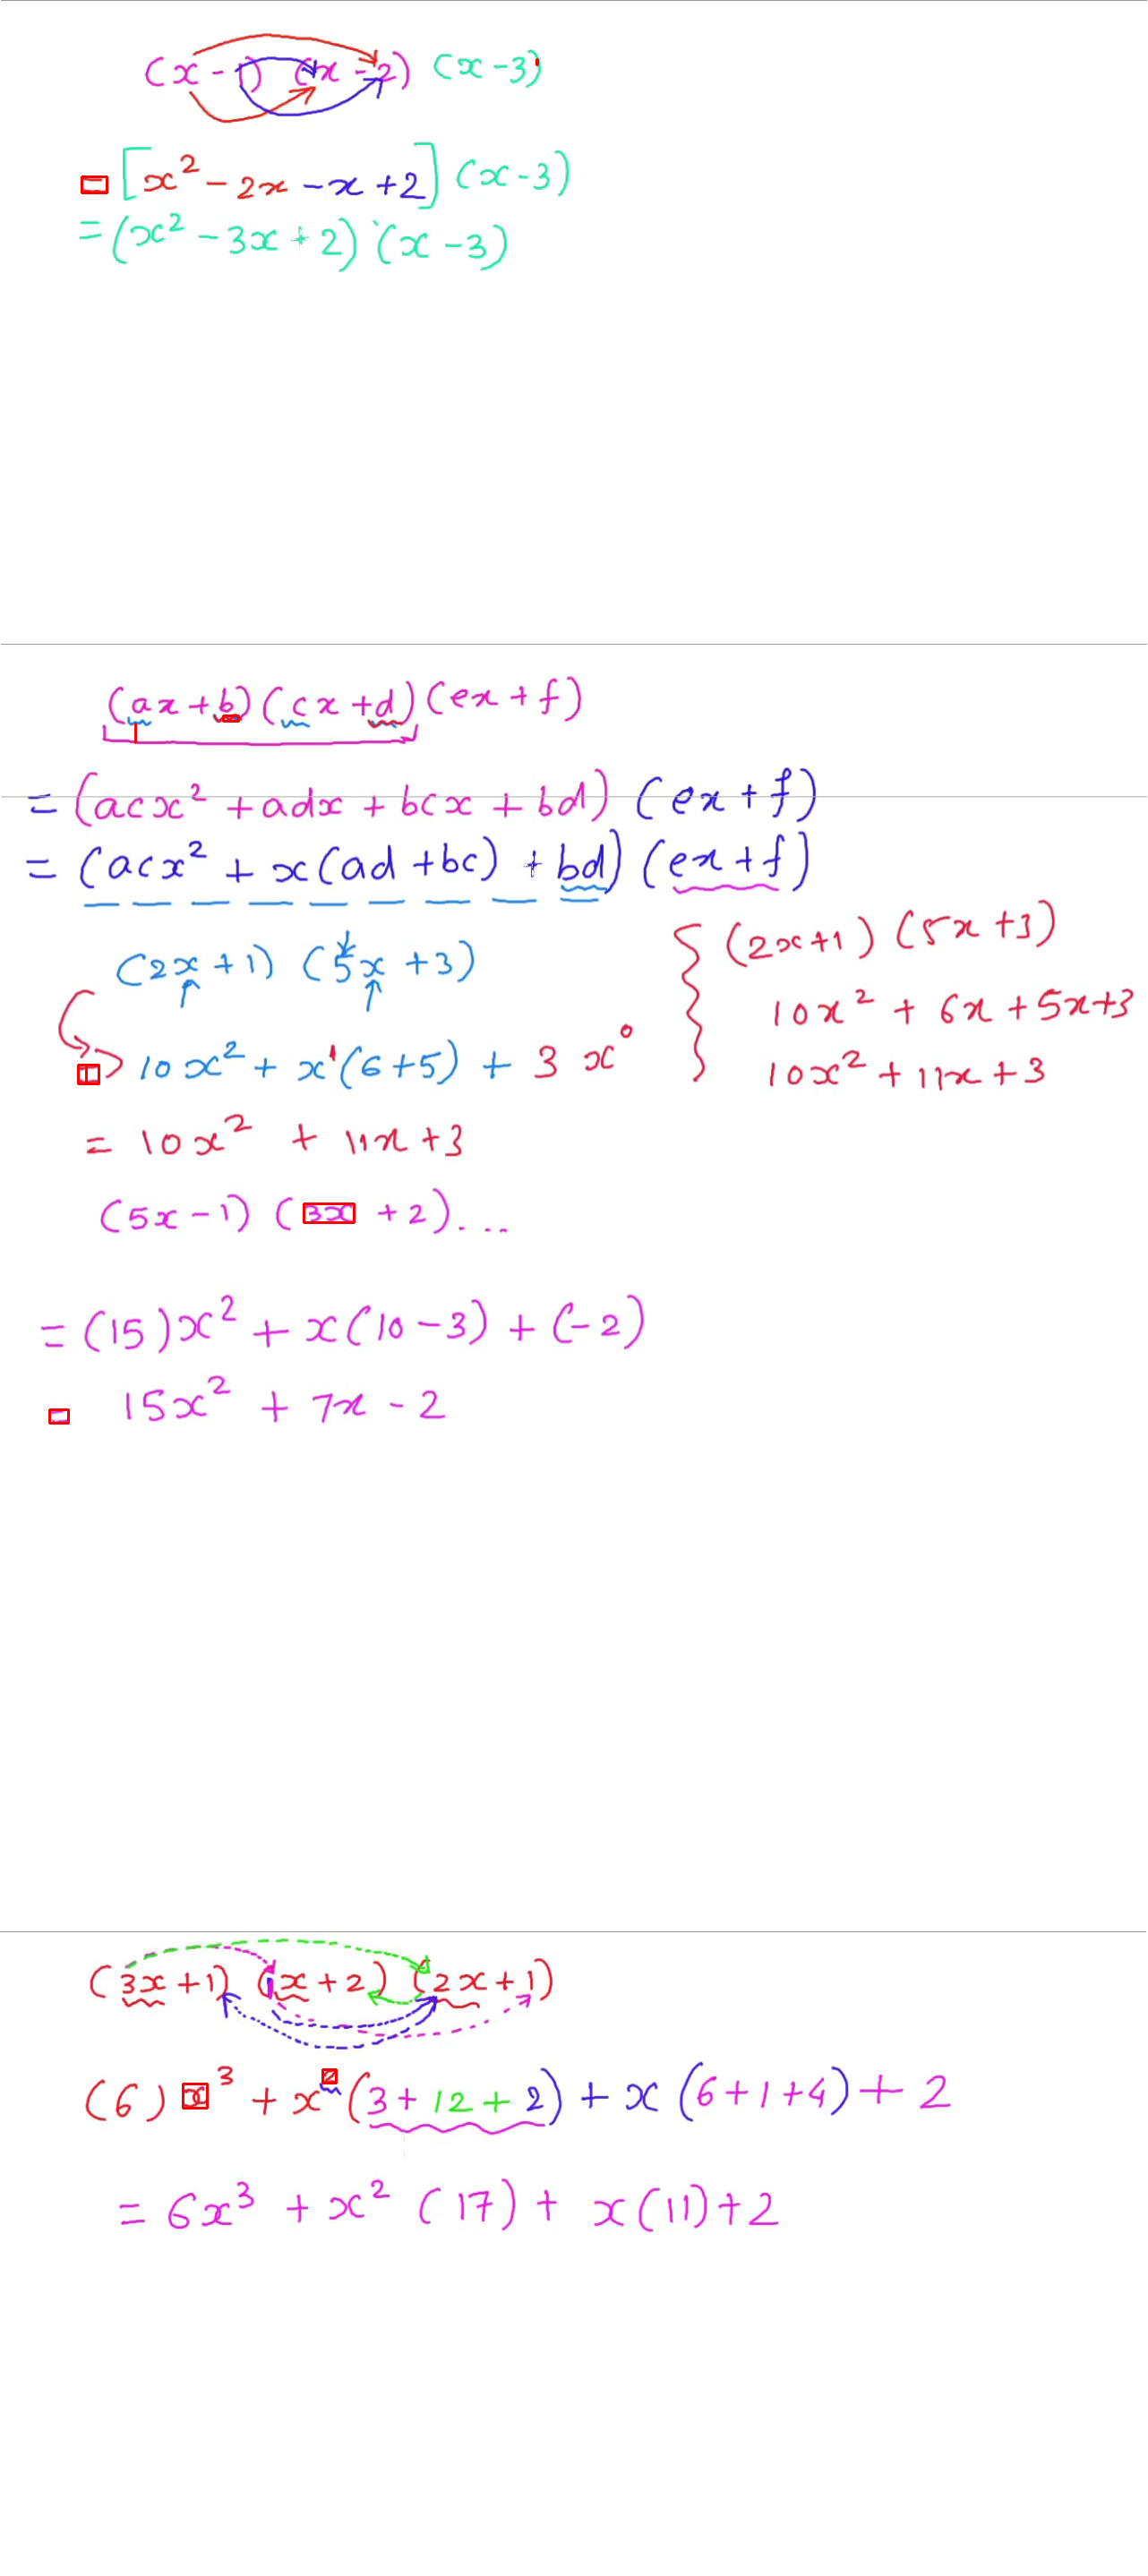 (x - 1) (x - 2) (x - 3)
= [x² - 2x - x + 2] (x - 3)
= (x² - 3x + 2) (x - 3)
(ax + b) (cx + d) (ex + f)
= (acx² + adx + bcx + bd) (ex + f)
= (acx² + x(ad + bc) + bd) (ex + f)
(2x + 1) (5x + 3)
10x² + x¹(6 + 5) + 3x⁰
= 10x² + 11x + 3
(2x + 1) (5x + 3)
10x² + 6x + 5x + 3
10x² + 11x + 3
(5x - 1) (3x + 2)...
= (15)x² + x(10 - 3) + (-2)
= 15x² + 7x - 2
(3x + 1) (1x + 2) (2x + 1)
(6)x³ + x²(3 + 12 + 2) + x(6 + 1 + 4) + 2
= 6x³ + x²(17) + x(11) + 2